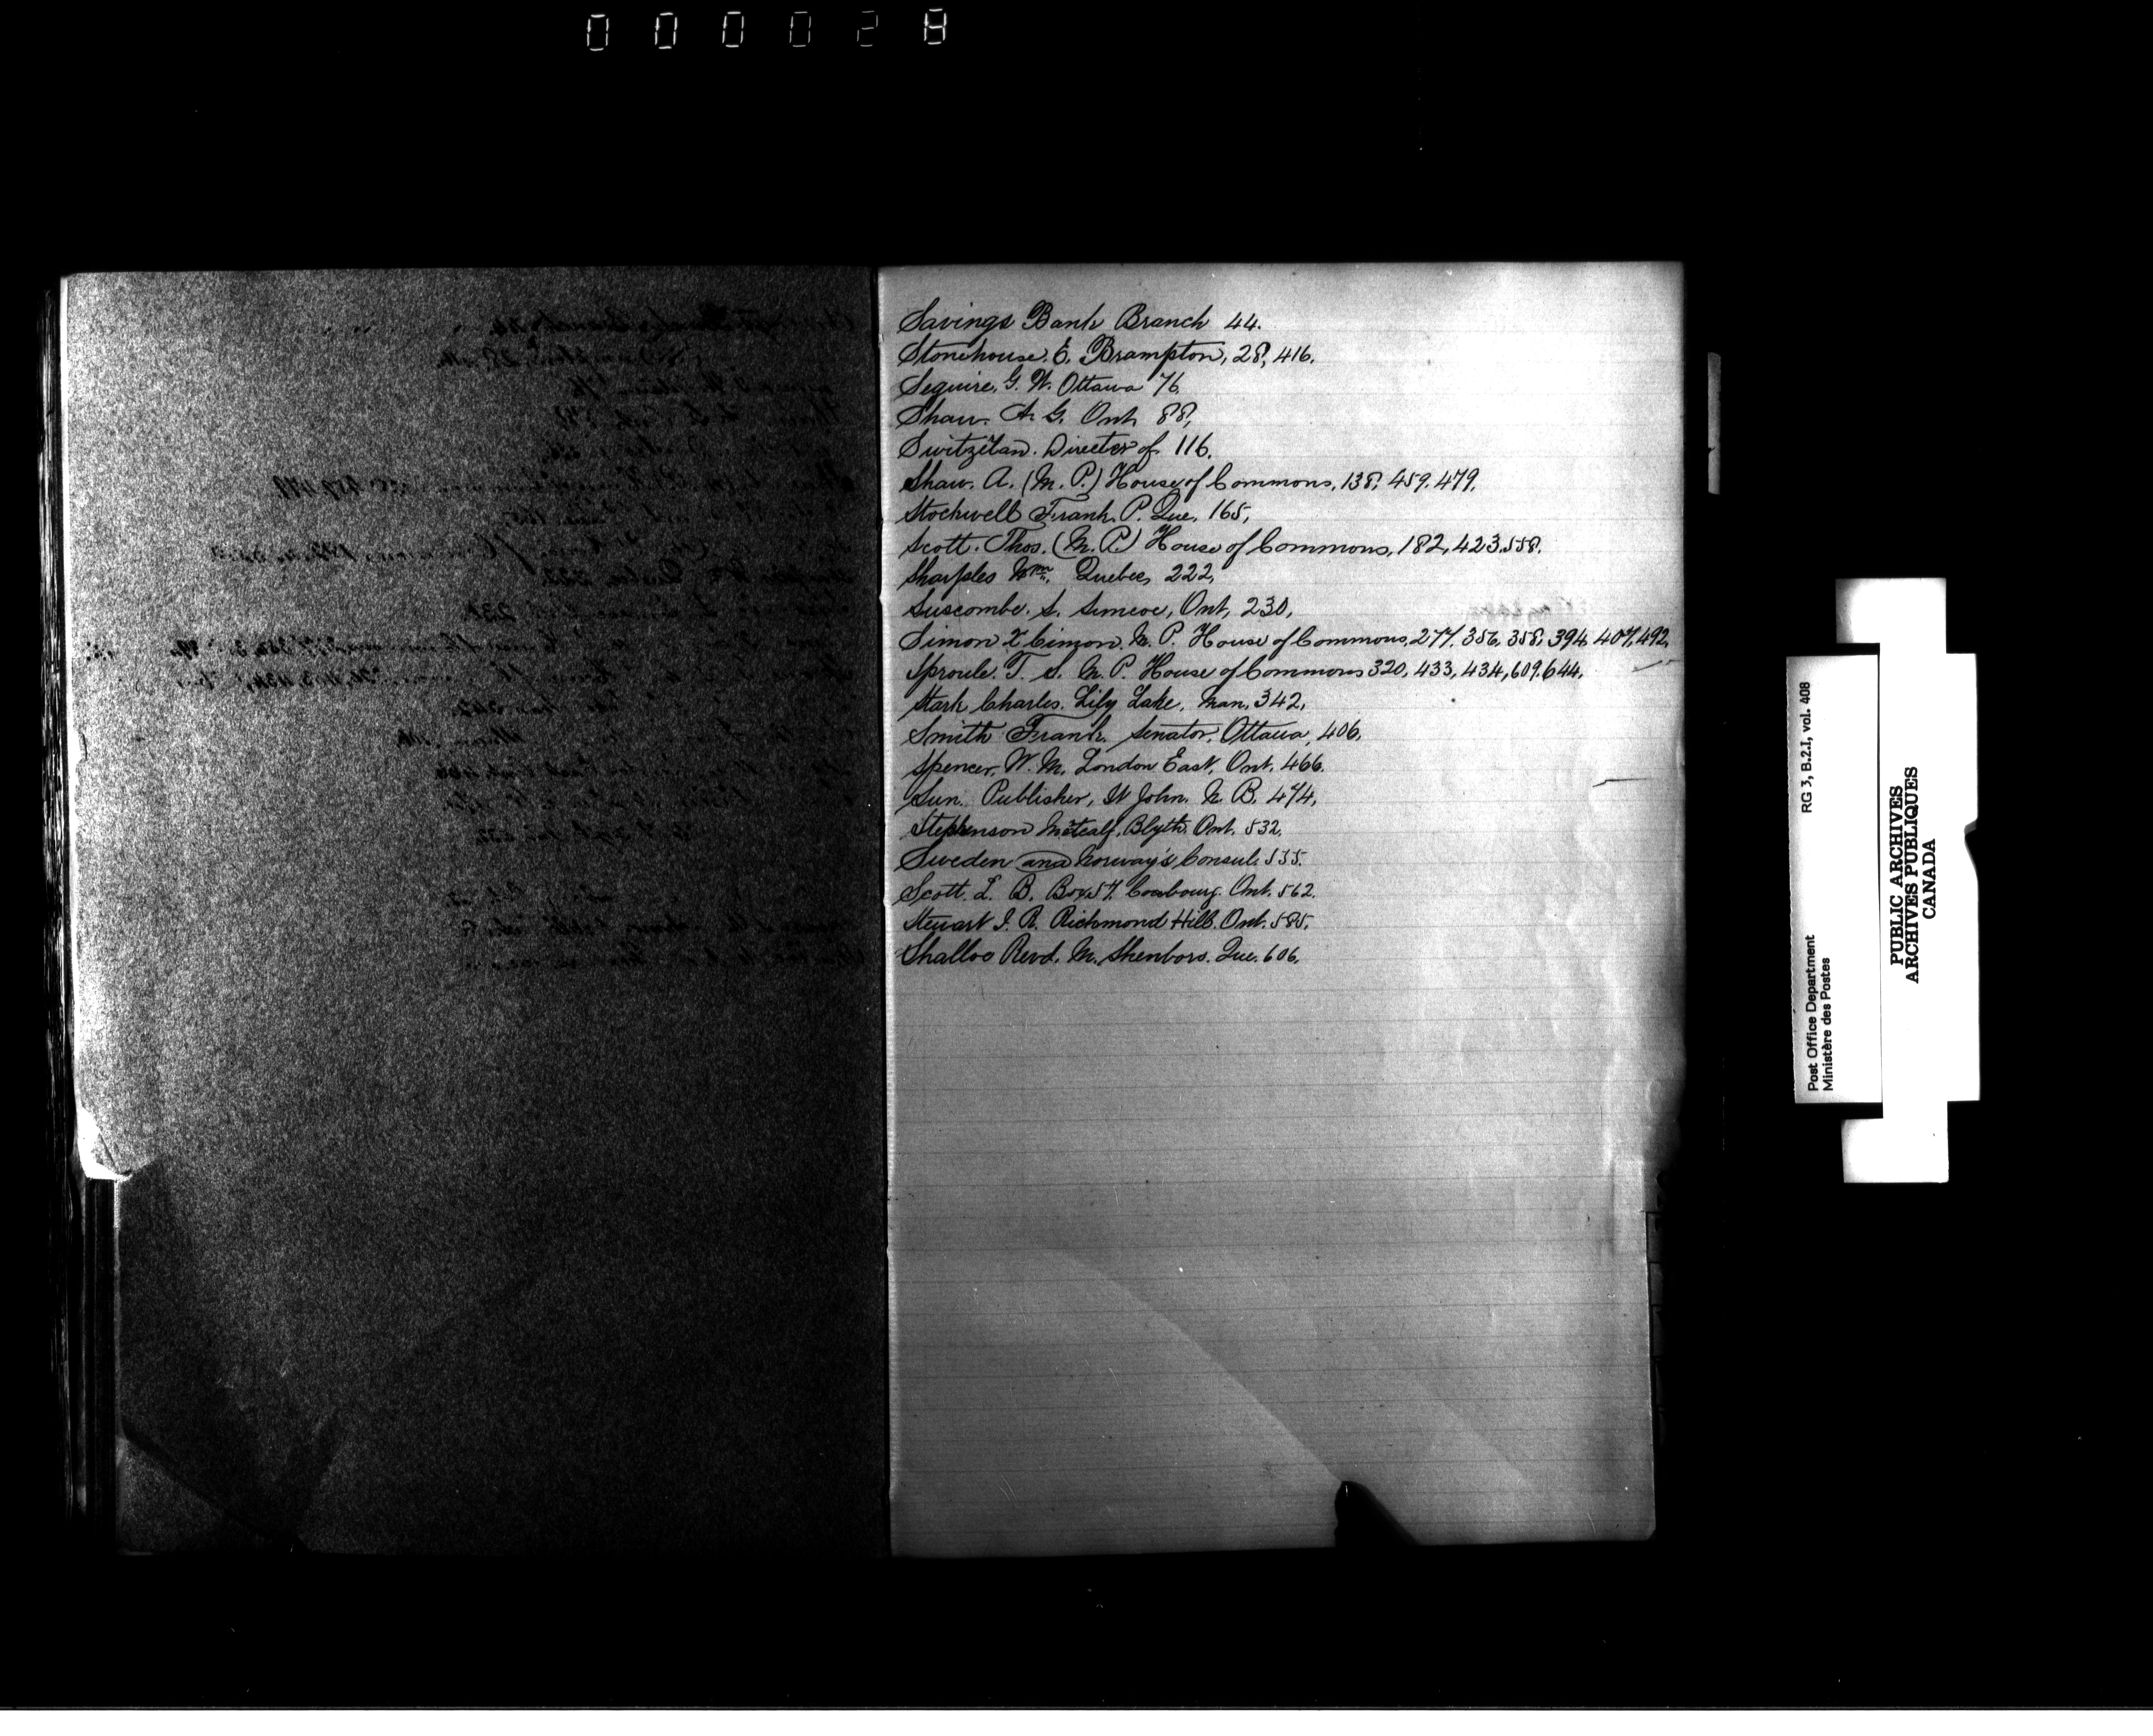 000028
Savings Bank Branch 44.
Stonehouse. E. Brampton, 28, 416.
Seguire, G. W. Ottawa 76
Shaw. A. G. Ont. 88,
Switzelan. Director of 116.
Shaw. A. (M. P.) House of Commons, 138, 459. 479.
Stockwell Frank. P. Que. 165,
Scott. Thos. (M. P.) House of Commons, 182, 423. 558.
Sharples Wm. Quebec, 222,
Suscombe. S. Simcoe, Ont, 230,
Simon X Cimon. M. P. House of Commons, 277. 356, 358, 394, 407, 492,
Sproule. T. S. M. P. House of Commons 320, 433, 434, 609. 644,
Stark Charles. Lily Lake, Man, 342,
Smith Frank. Senator, Ottawa, 406,
Spencer, W. M. London East, Ont. 466.
Sun. Publisher, St John. N. B. 474,
Stephenson Metcalf, Blyth. Ont. 532.
Sweden and Norway's Consul. 535.
Scott. L. B. Box 57. Coubourg. Ont. 562.
Steuart J. R. Richmond Hill. Ont. 585,
Shalloo Revd. M. Shenboro. Que. 606,
RG 3, B.2.1, vol. 408
Post Office Department
Ministère des Postes
PUBLIC ARCHIVES
ARCHIVES PUBLIQUES
CANADA